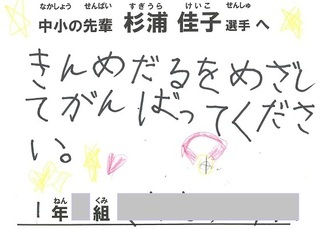 なかしょう せんぱい すぎうら けいこ せんしゅ
中小の先輩 杉浦 佳子 選手 へ
きんめだるをめざし
てがんばってくださ
い。
ねん くみ
1年 組